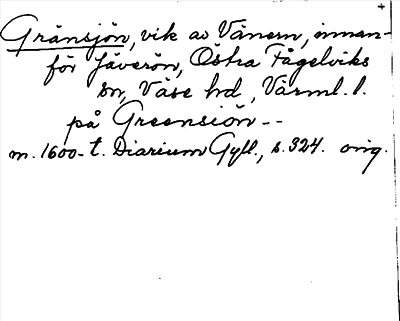 Gränsjön, vik av Vänern, innan-
för Jäverön, Östra Fågelviks
sn, Väse hd, Värml. l.
på Greensiön --
m. 1600-t. Diarium Gyll., s. 324. orig.